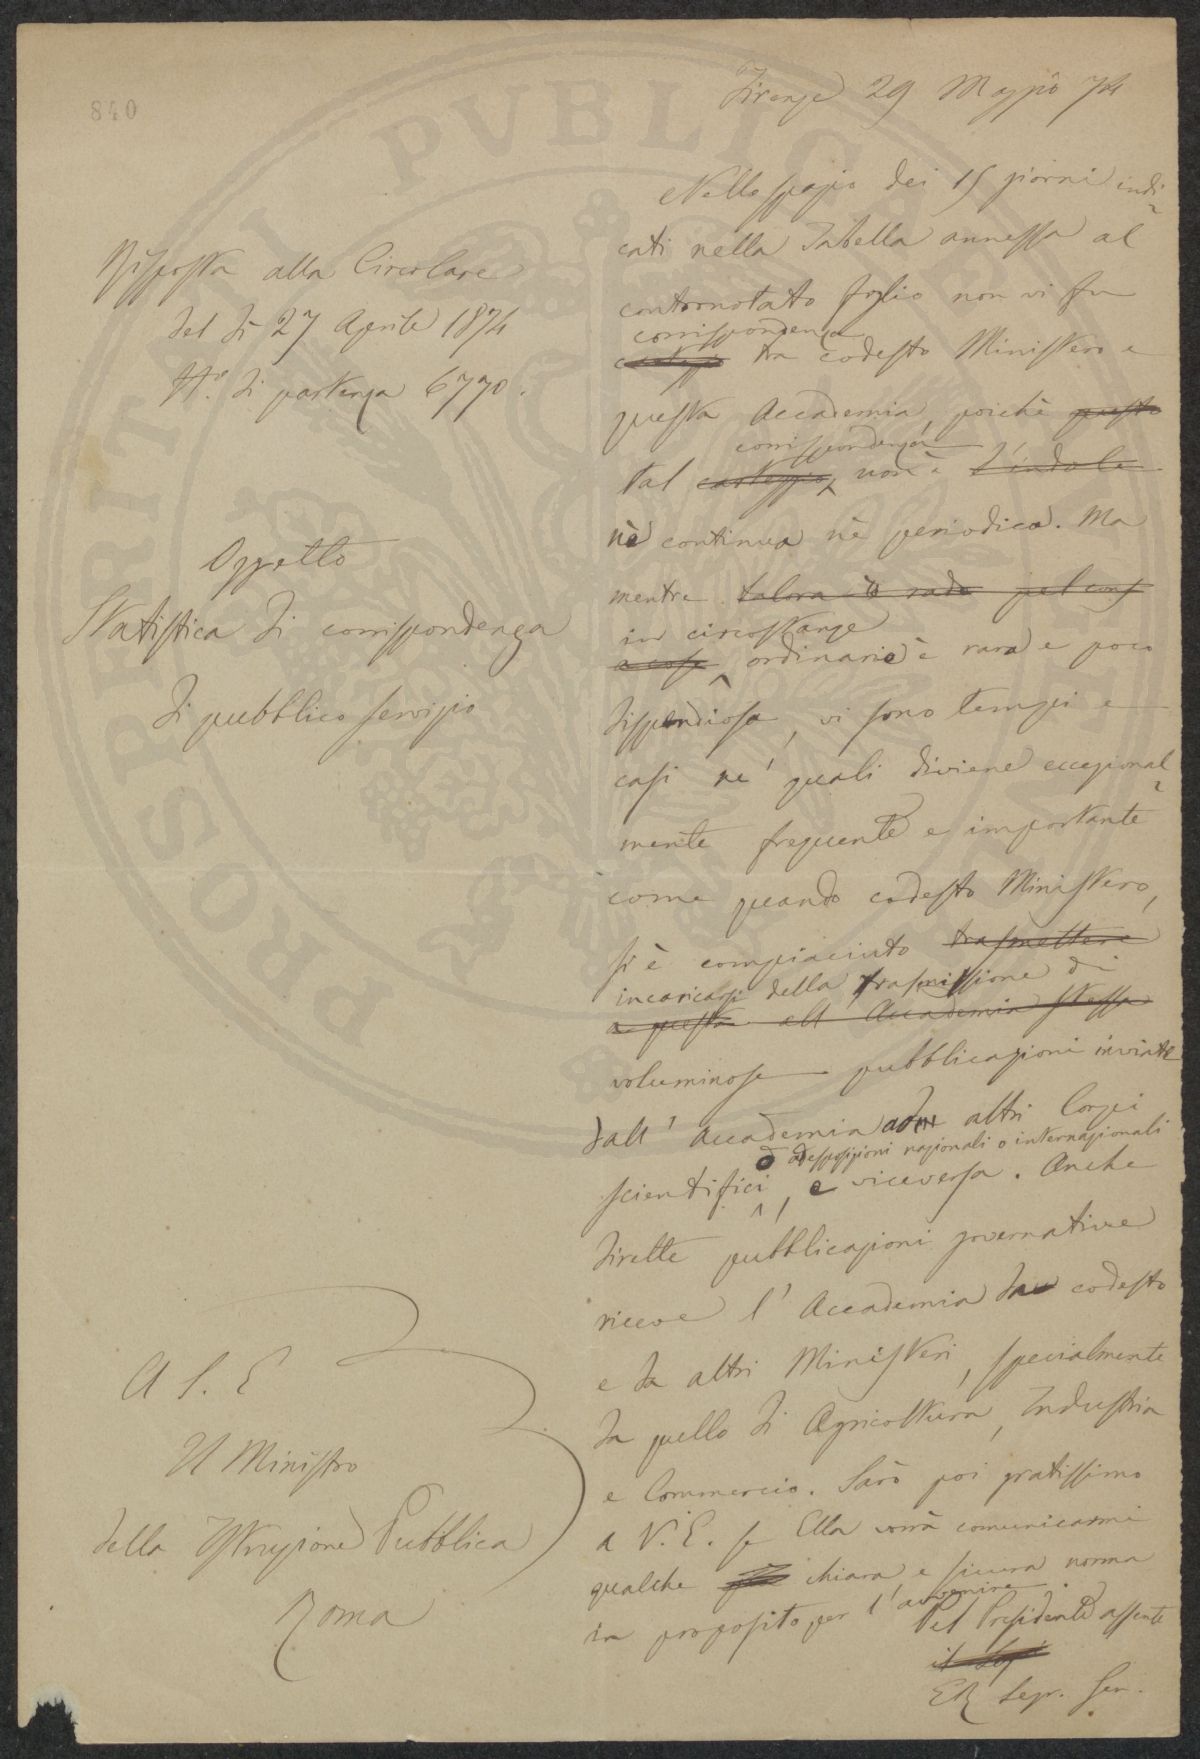 840
Firenze 29 Maggio 74
Risposta alla Circolare
del dì 27 Aprile 1874
N.° di partenza 6770.
Oggetto
Statistica di corrispondenza
di pubblico servizio
Nello spazio dei 15 giorni indi-
cati nella Tabella annessa al
controNotato foglio non vi fu
corrispondenza
carteggio tra codesto Ministero e
questa Accademia, poichè questo
corrispondenza
tal carteggio, non è l'indole
nè continua nè periodica. Ma
mentre talora è rado pel cons
in circostanze
a cose ordinarie è rara e poco
dispendiosa, vi sono tempi e
casi ne' quali diviene eccezional-
mente frequente e importante
come quando codesto Ministero,
si è compiaciuto trasmettere
incaricarsi della trasmissione di
a questa all'Accademia stessa
voluminose pubblicazioni inviate
dall'Accademia ad altri Corpi
o ad esposizioni nazionali o internazionali
scientifici, e viceversa. Anche
dirette pubblicazioni governative
riceve l'Accademia da codesto
e da altri Ministeri, specialmente
da quello di Agricoltura, Industria
e Commercio. Sarò poi gratissimo
a V. E. se Ella vorrà comunicarmi
qualche chiara e sicura norma
in proposito per l'avvenire.
Pel Presidente assente
il Seg
Il Segr. Gen.
A S. E
Il Ministro
della Istruzione Pubblica
Roma
PROSPERITATI PVBLICAE